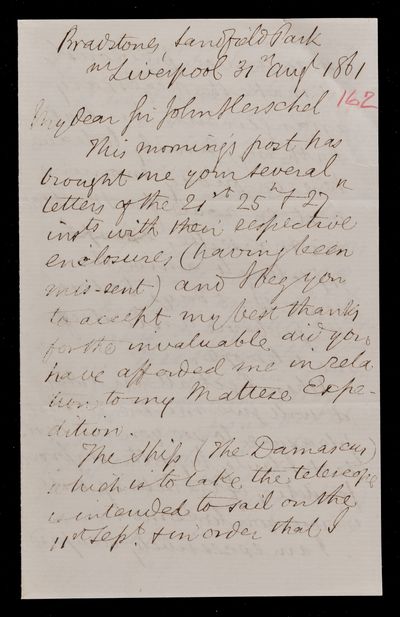 Bradstones, Sandfield Park
nr Liverpool 31st Augt 1861
162
My dear Sir John Herschel
This morning's post has
brought me your several
letters of the 21st 25th & 27th
insts with their respective
enclosures (having been
mis-sent) and I beg you
to accept my best thanks
for the invaluable aid you
have afforded me in rela
tion to my Maltese Expe-
dition.
The Ship (The Damascus)
which is to take the telescope
is intended to sail on the
11th Sept. & in order that I